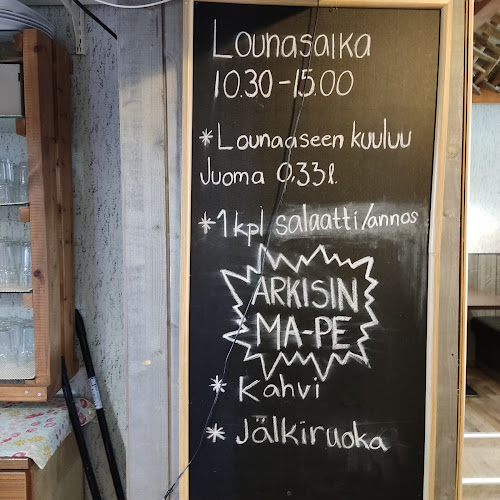 Lounasaika
10.30-15.00
* Lounaaseen kuuluu
Juoma 0,33l.
* 1 kpl salaatti/annos
ARKISIN
MA-PE
* Kahvi
* Jälkiruoka